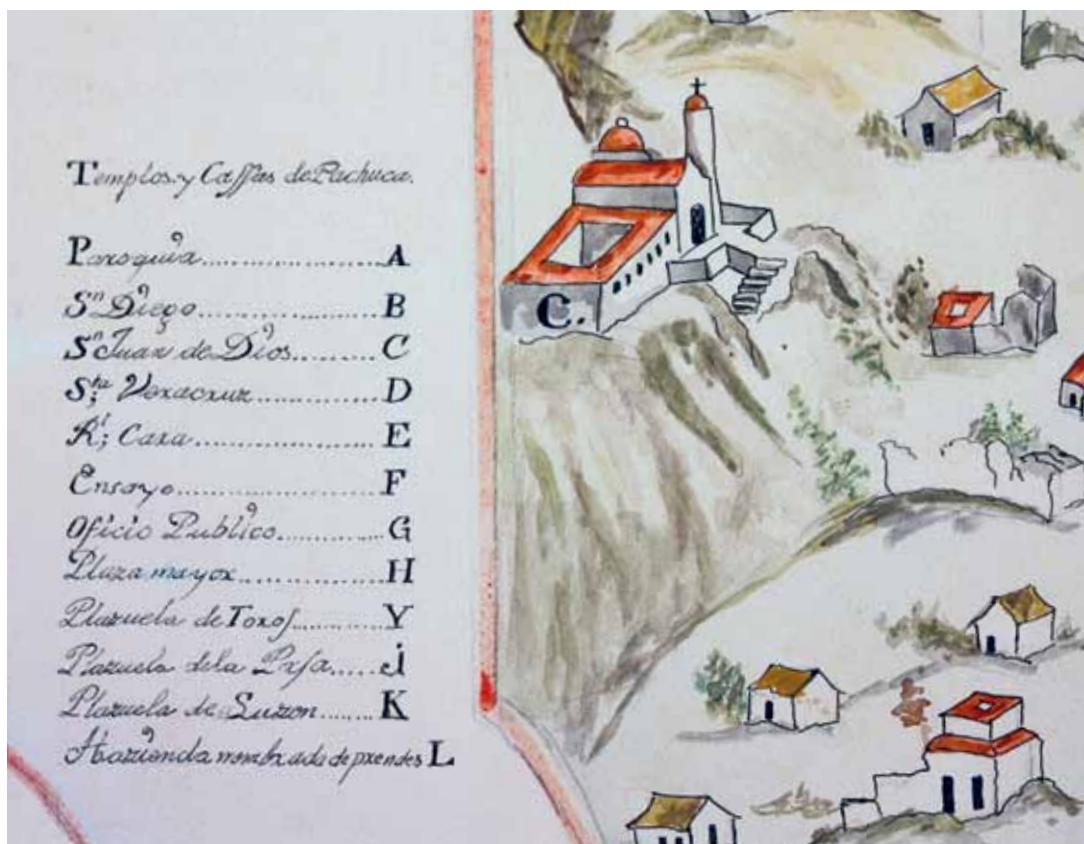 Templos. y Cassas de Pachuca.
Paroquia.................... A
Sⁿ Diego.................... B
Sⁿ Juan de Dios......... C
Sᵗᵃ; Veracruz............... D
Rˡ; Caxa...................... E
Ensayo........................ F
Oficio Publico............. G
Plaza mayor................ H
Plazuela de Toros......... Y
Plazuela dela Presa..... J
Plazuela de Suzon....... K
Hazienda nombrada de prendes L
C.